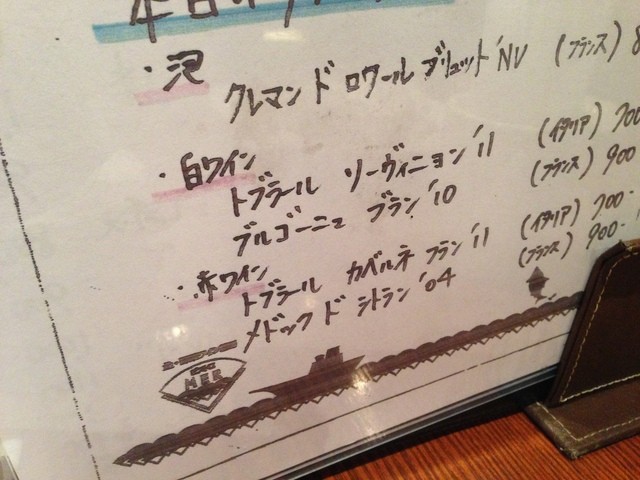 ・泡
クレマン ド ロワール ブリュット 'NV (フランス)
・白ワイン
トブラール ソーヴィニョン '11 (イタリア) 700
ブルゴーニュ ブラン '10 (フランス) 900
・赤ワイン
トブラール カベルネ フラン '11 (イタリア) 700-
メドック ド シトラン '04 (フランス) 900-